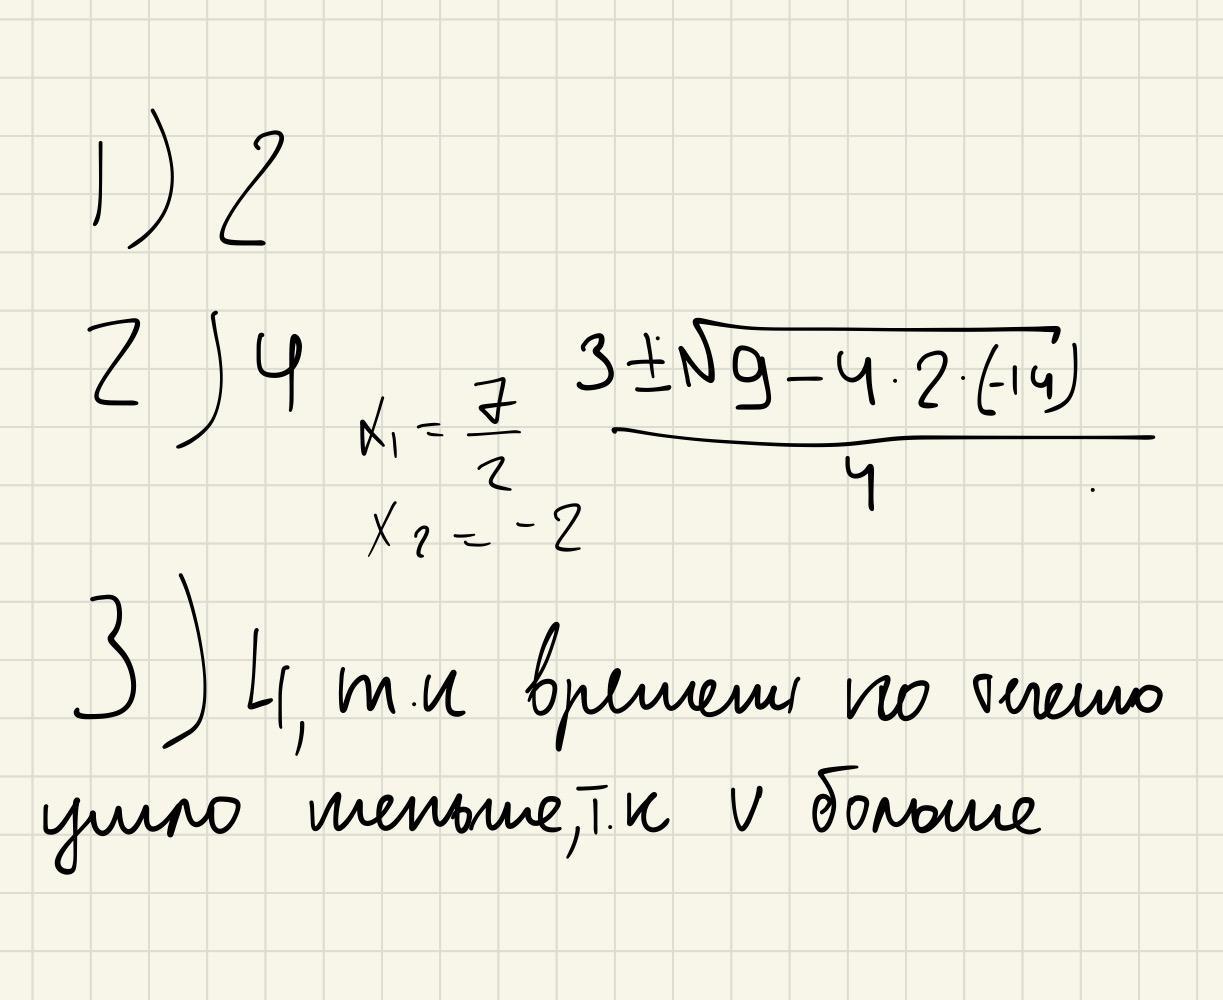 1) 2
2) 4 x₁ = 7/2 (3 ± √9 - 4 · 2 · (-14))/4
x₂ = -2
3) 4, т.к времени по течению
ушло меньше, т.к v больше